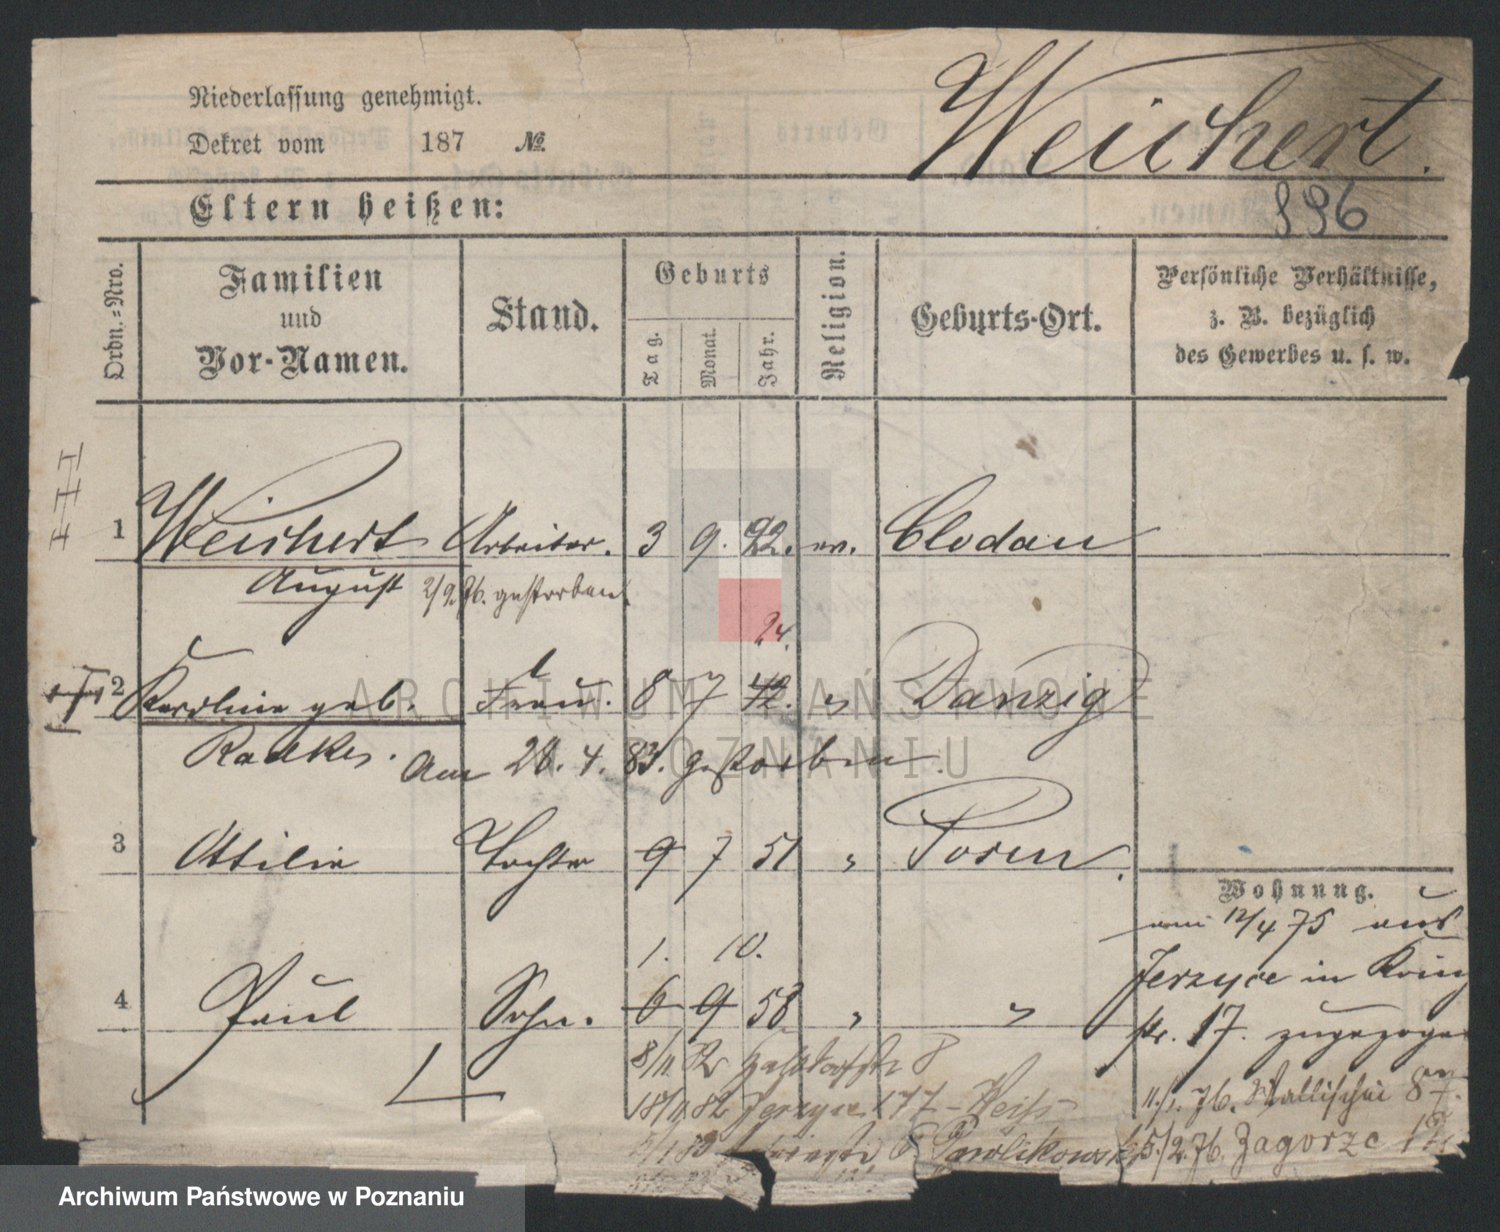 Niederlassung genehmigt.
Dekret vom 187 №.
Weichert.
896
Eltern heißen:
Ordn.-Nro.
Familien
und
Vor-Namen.
Stand.
Geburts
Tag.
Monat.
Jahr.
Religion.
Geburts-Ort.
Persönliche Verhältnisse,
z. B. bezüglich
des Gewerbes u. s. w.
1 Weichert Arbeiter. 3 9. 22. ev. Clodau
August 2/9.76. gestorben
24.
2 Karoline geb. Frau. 8 7 42. " Danzig
Radkes. Am 28. 4. 83. gestorben
3 Ottilie Tochter 9 7 51 " Posen.
Wohnung.
am 12/4 75 aus
Jerzyce in König
1. 10.
4 Paul Sohn. 6 9 58 " "
str. 17. zugezogen
8/11 82 Halbdorfstr 8
11./1. 76. Wallischei 87.
18/11 82 Jerzyce 177 - Weiss
5./2.76. Zagorze
Pawlikowski
ARCHIWUM PAŃSTWOWE
W POZNANIU
Archiwum Państwowe w Poznaniu